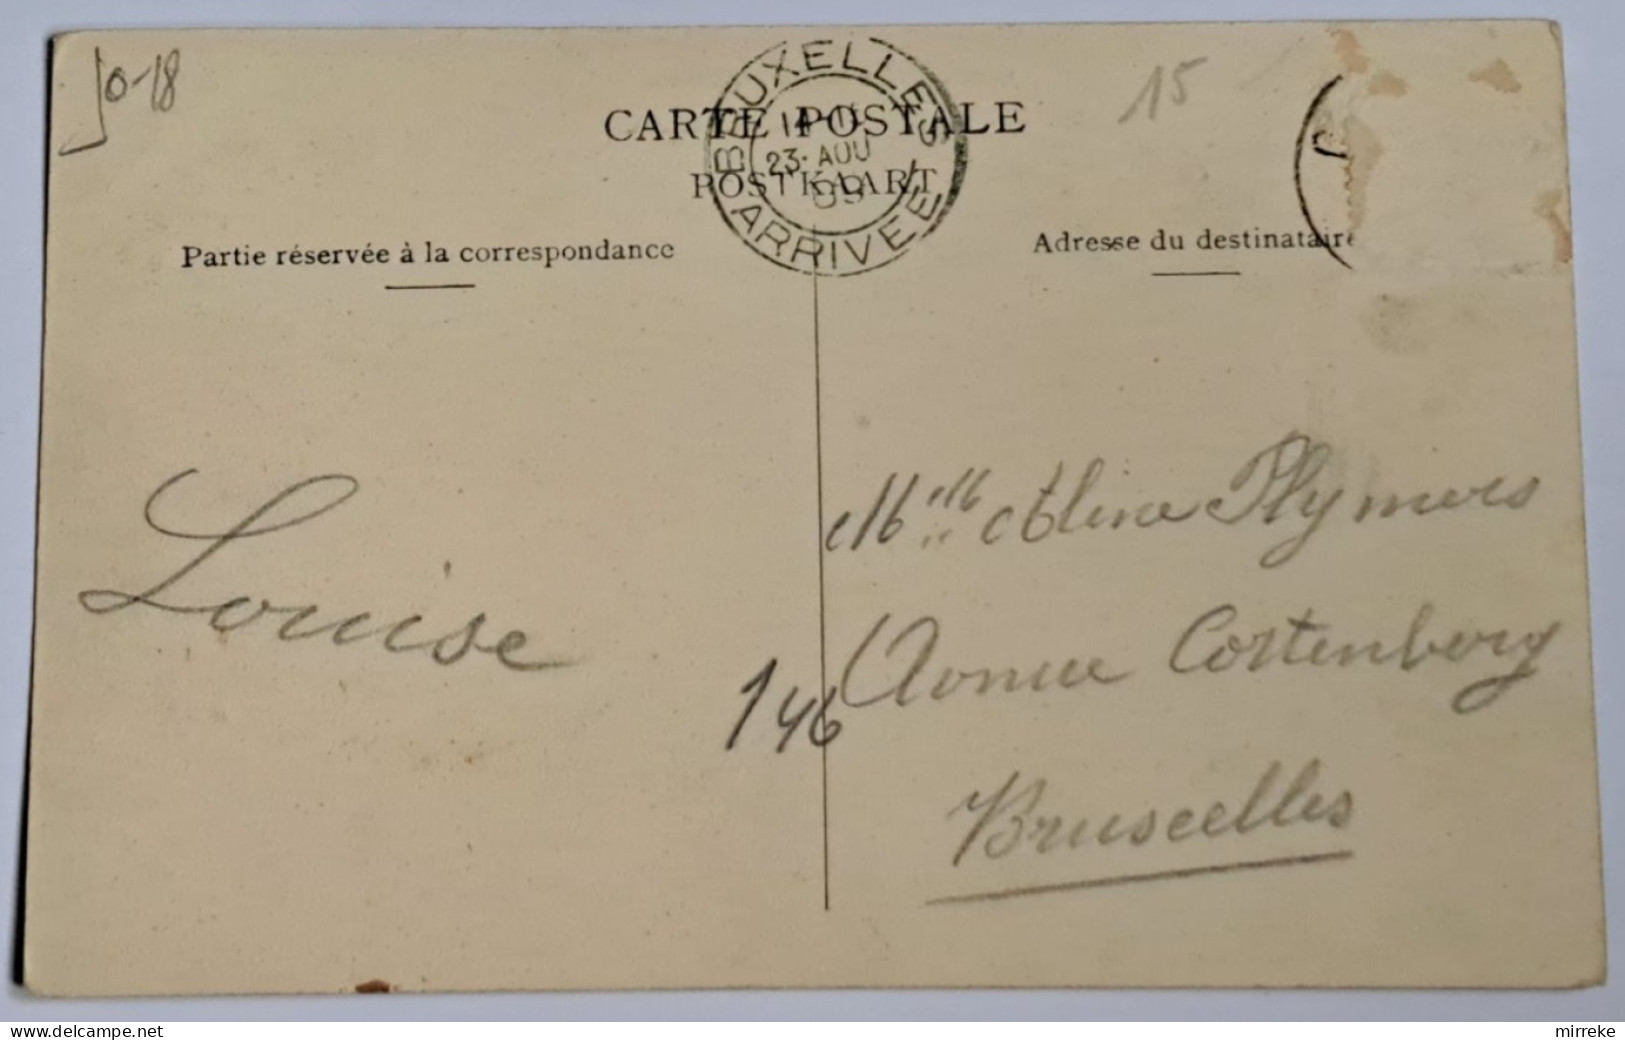 J0-18
15
BRUXELLES
23 AOU
09
ARRIVÉE
CARTE POSTALE
POSTKAART
Partie réservée à la correspondance
Adresse du destinataire
Louise
Melle Aline Plymers
146 Avenue Cortenberg
Bruxelles
delcampe.net
mirreke